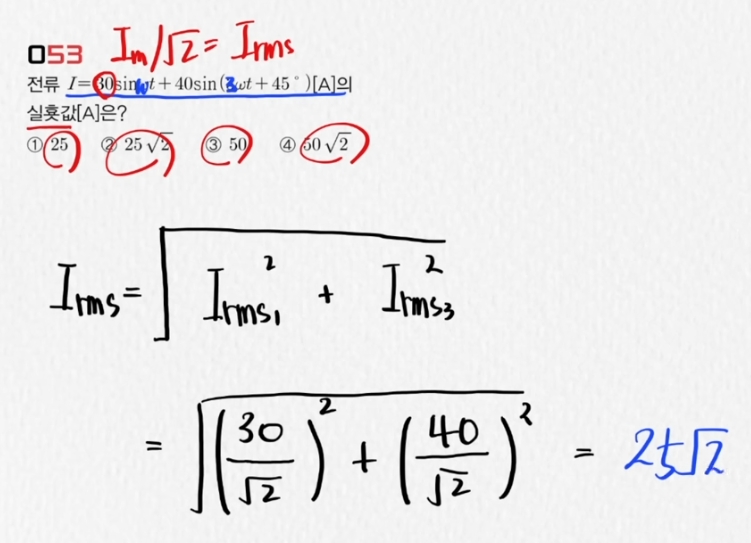 053 Im/√2 = Irms
전류 I=30sinωt+40sin(3ωt+45°)[A]의
실횻값[A]은?
① 25 ② 25√2 ③ 50 ④ 50√2
Irms = √(Irms₁² + Irms₃²)
= √((30/√2)² + (40/√2)²) = 25√2